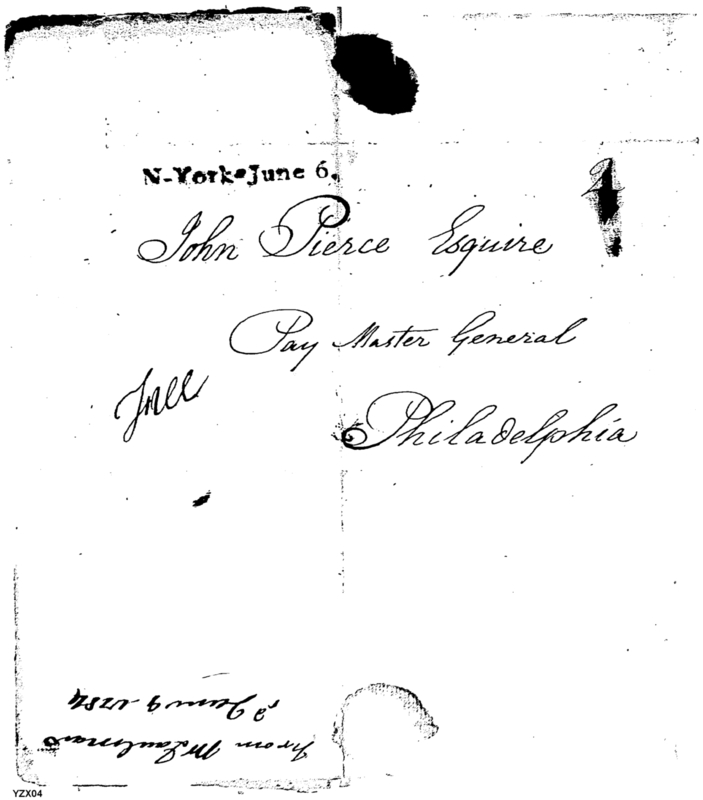 N-York-June 6.
John Pierce Esquire
Pay Master General
Free
Philadelphia
From Mr
June 9 1784
YZX04